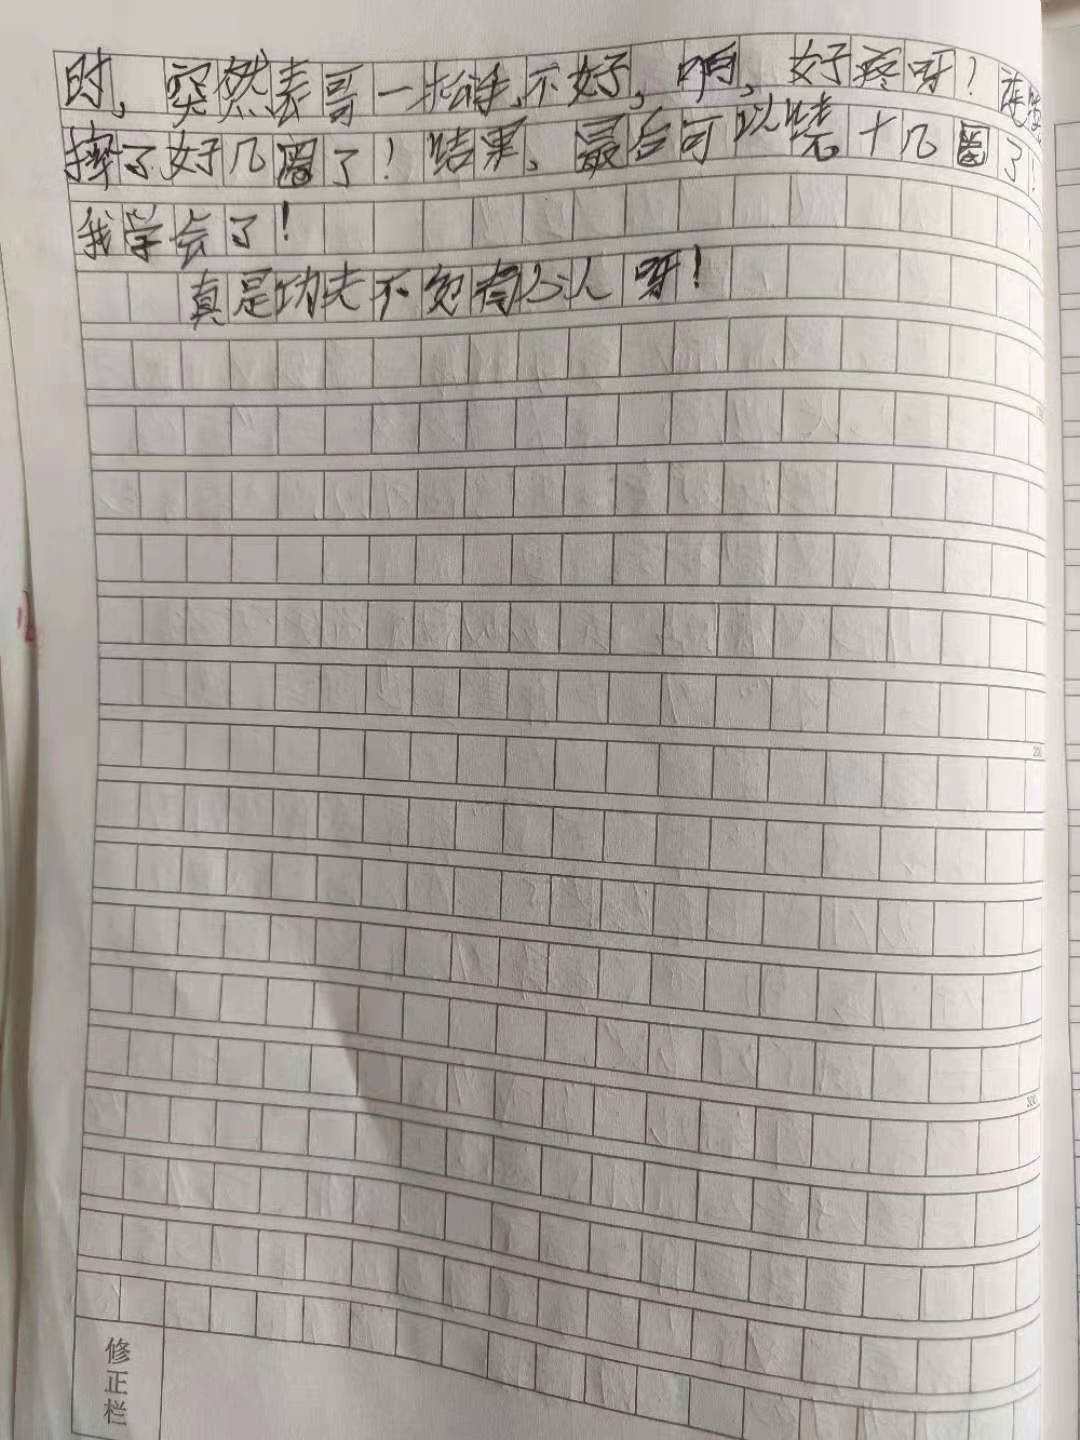 时，突然表哥一松手，不好，啊，好疼呀！
摔了好几圈了！结果，最后可以骑十几圈了！
我学会了！
真是功夫不负有心人呀！
200
300
修正栏